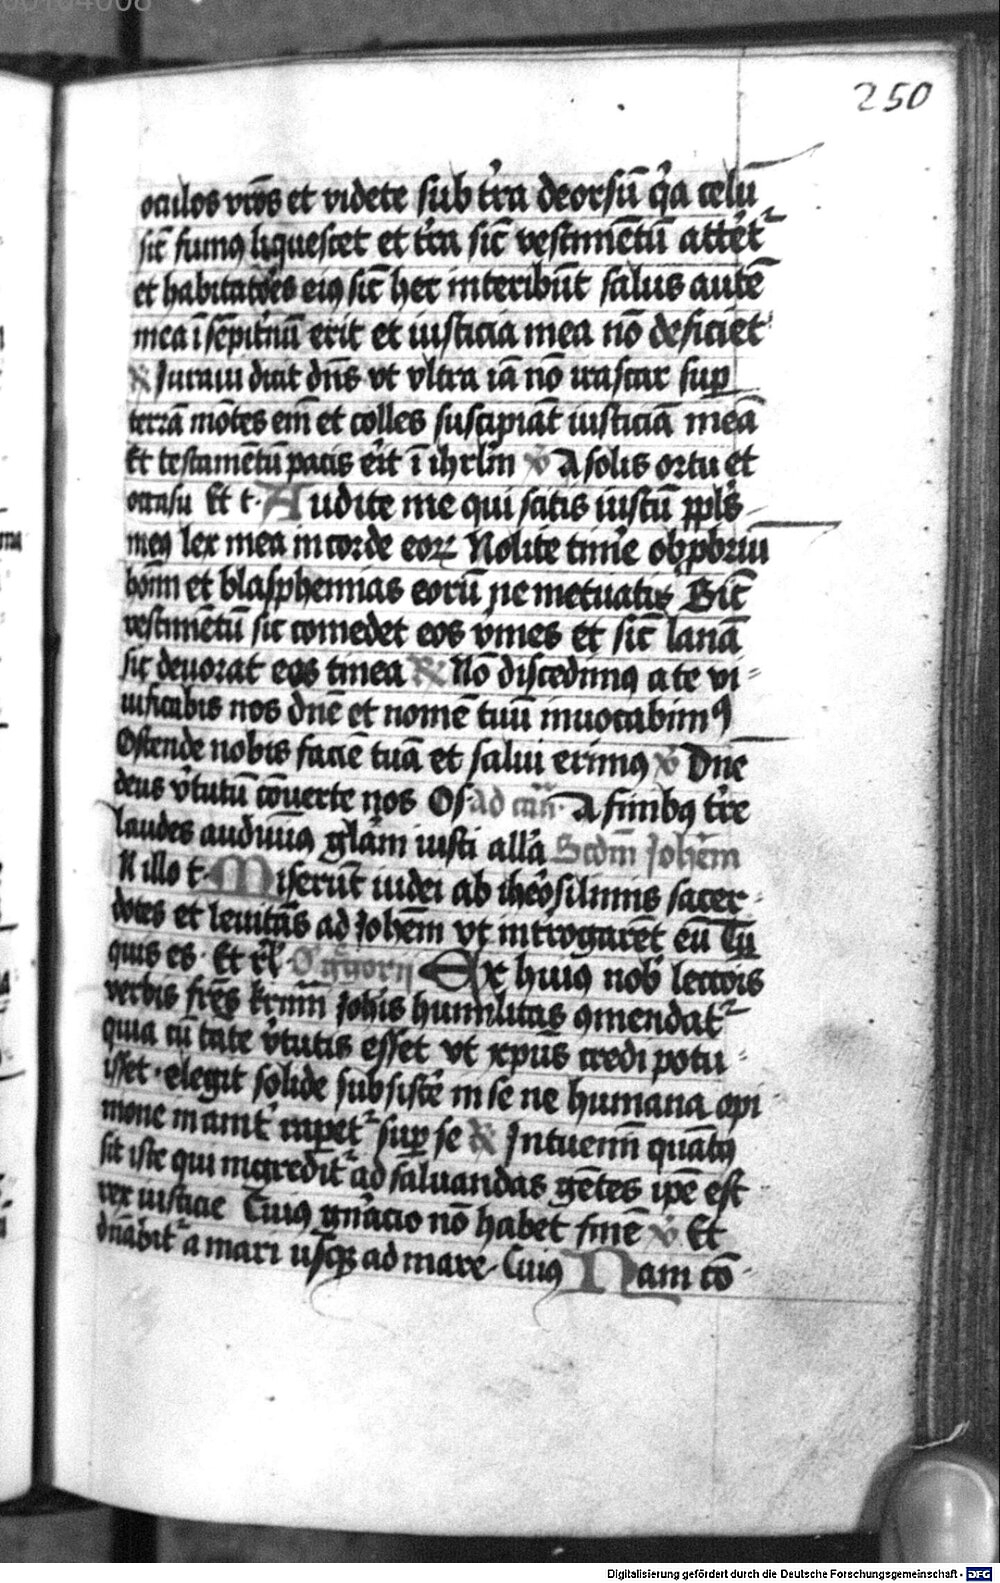 250
oculos vr̄os et videte sub tr̄ra deorsū q̇a celū
sic̄ fumꝯ liquescet et tr̄ra sic̄ vestimētū attēt᷑
et habitatōes eiꝯ sic̄ hec interibūt salus autē
mea ī sēpit̄nū erit et iusticia mea nō deficiet
℟ Juraui dicit dn̄s vt vltra iā nō irascar sup̄
terrā mōtes em̄ et colles suscipiāt iusticiā meā
Et testamētū pacis erit ī ihrlm̄ ℣ A solis ortu et
occasu Et t. Audite me qui scitis iustū ppl̄s
meꝯ lex mea in corde eoꝝ Nolite tim̄e obp̄briū
hōim et blasphemias eorū ne metuatis Sic̄
vestimētū sic comedet eos v̄mes et sic̄ lanā
sic deuorat eos tinea ℟ Nō discedimꝯ a te vi
uificabis nos dn̄e et nomē tuū inuocabimꝯ
Ostende nobis faciē tuā et salui erimꝯ ℣ Dn̄e
deus v̄tutū cōuerte nos Os ad can̄ A finibꝯ tr̄re
laudes audiuimꝯ gl̄am iusti all̄a Scdm̄ Johēm
N illo t. Miserūt iudei ab iherosilimis sacer
dotes et leuitas ad Johēm vt int̄rogarēt eū Tu
quis es. Et rl̄ Gg̅orij Ex huiꝯ nob̄ lectōis
verbis fr̄es kr̄mi Joh̄is humilitas ꝯmendat᷑
quia cū tāte v̄tutis esset vt xp̄us credi potu
isset. elegit solide subsistē in se ne humana opi
nione inanit̄ rapet᷑ sup̄ se ℟ Intuemī quātꝯ
sit iste qui ingredit᷑ ad saluandas gētes ip̄e est
rex iusticie Cuiꝯ gn̄acio nō habet finē ℣ Et
dn̄abit᷑ a mari usqꝫ ad mare. Cuiꝯ Nam cō
Digitalisierung gefördert durch die Deutsche Forschungsgemeinschaft - DFG